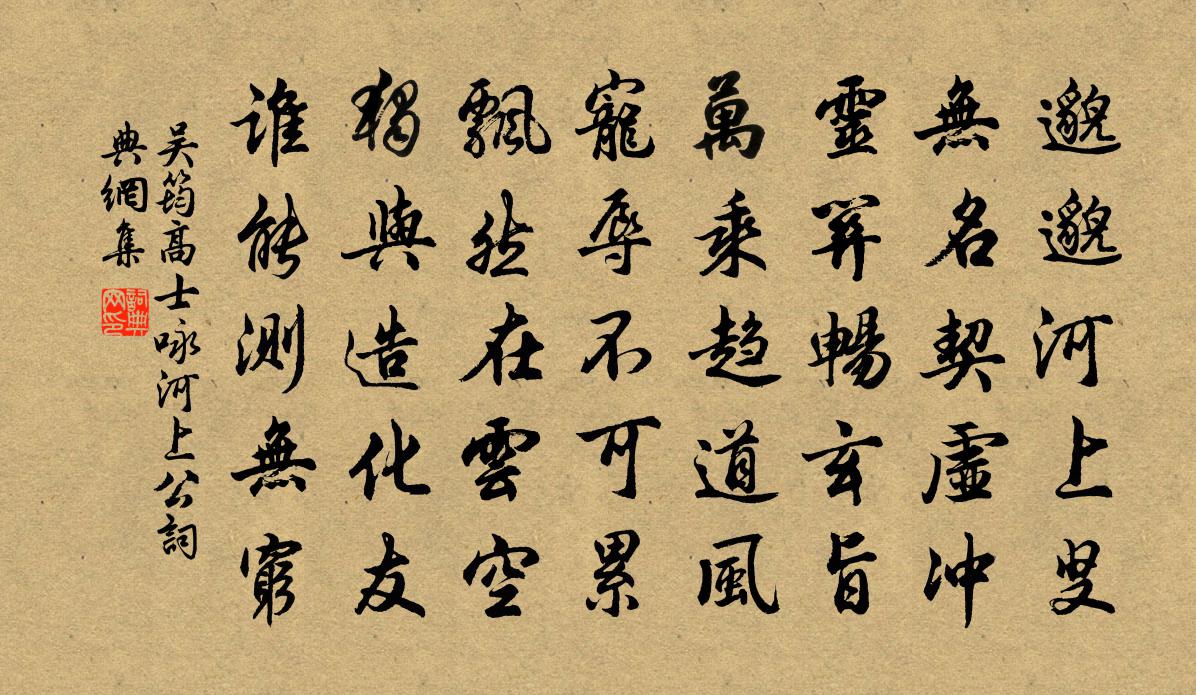 邈邈河上叟
無名契虛沖
靈關暢玄旨
萬乘趍道風
寵辱不可累
飄然在雲空
獨與造化友
誰能測無窮
吴筠高士咏河上公詞
典網集
詞典网印